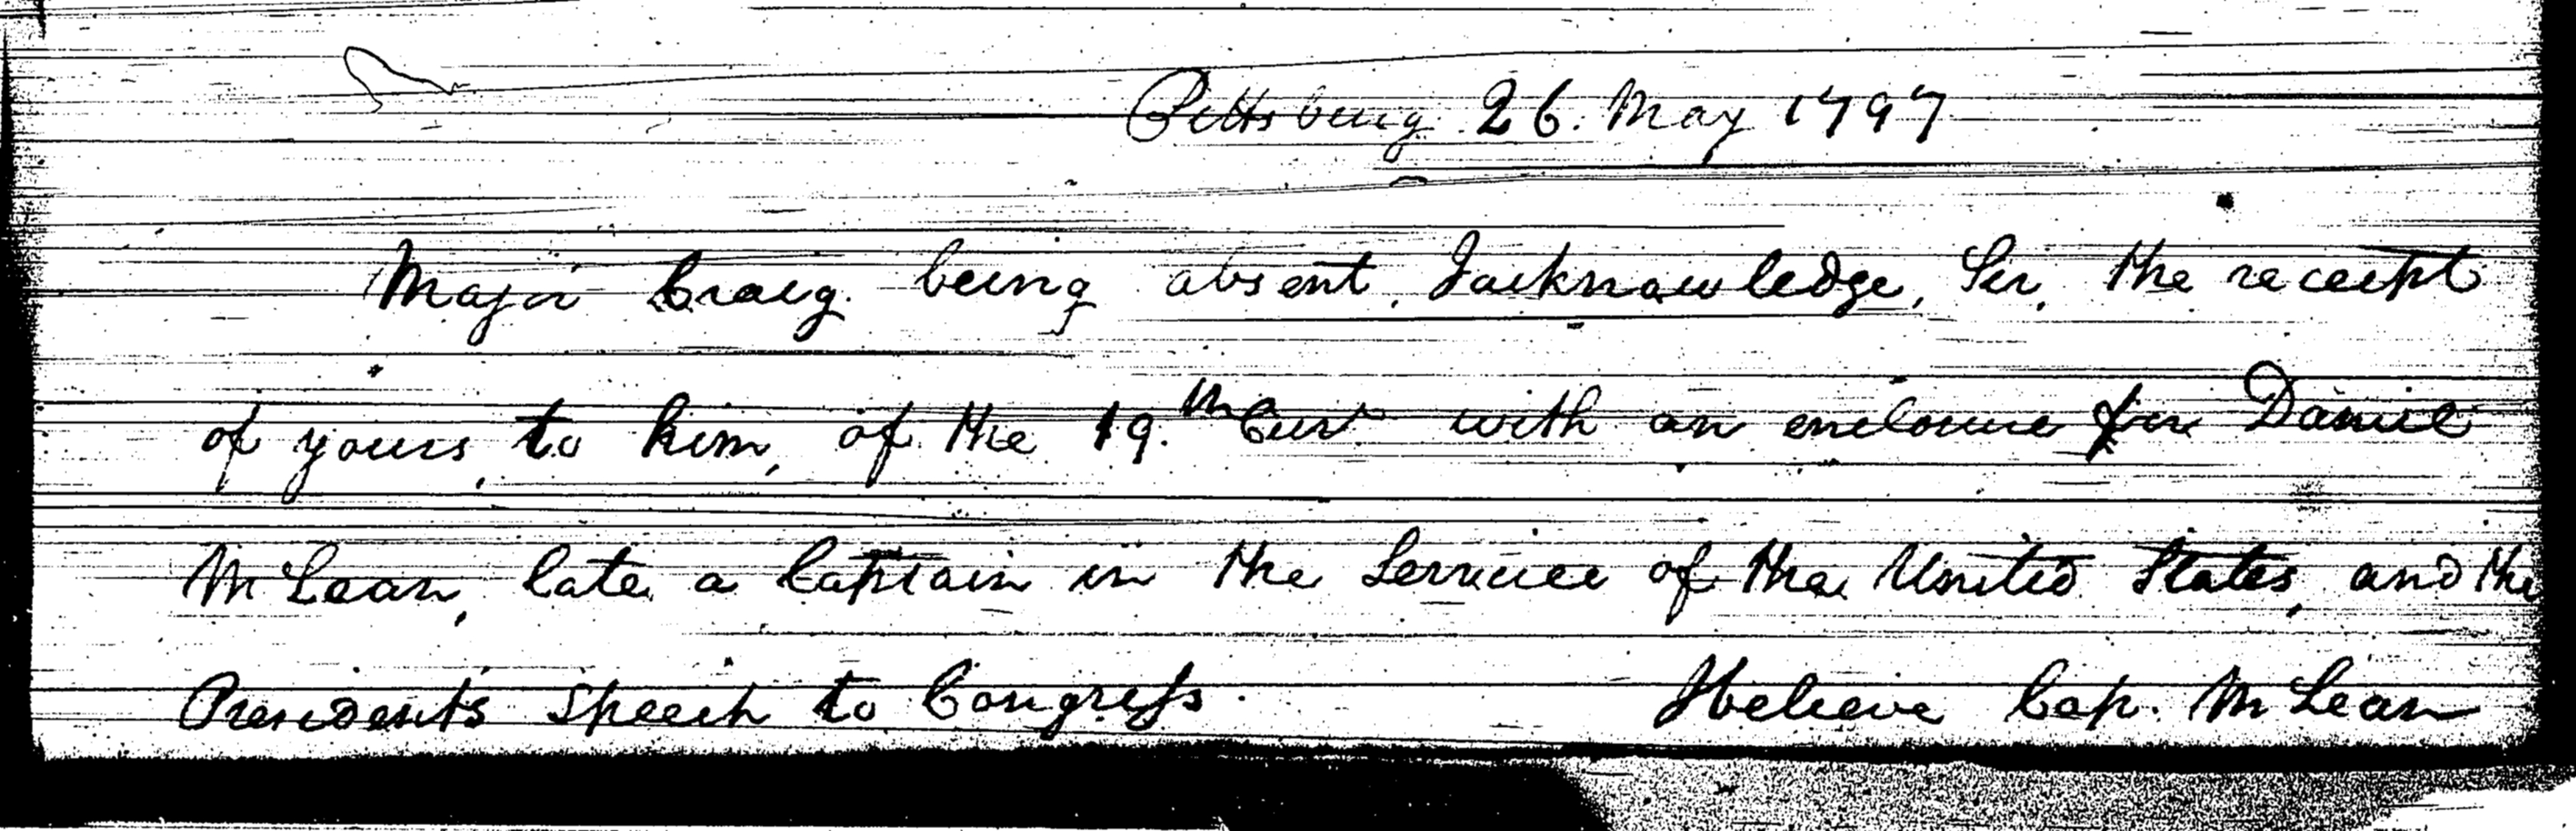 Pittsburg 26. May 1797
Major Craig. being absent, I acknowledge, Sir, the receipt
of yours, to him, of the 19.th Curt with an enclosure for Daniel
McLean, late a Captain in the Service of the United States, and the
President's Speech to Congress. I believe Cap. McLean